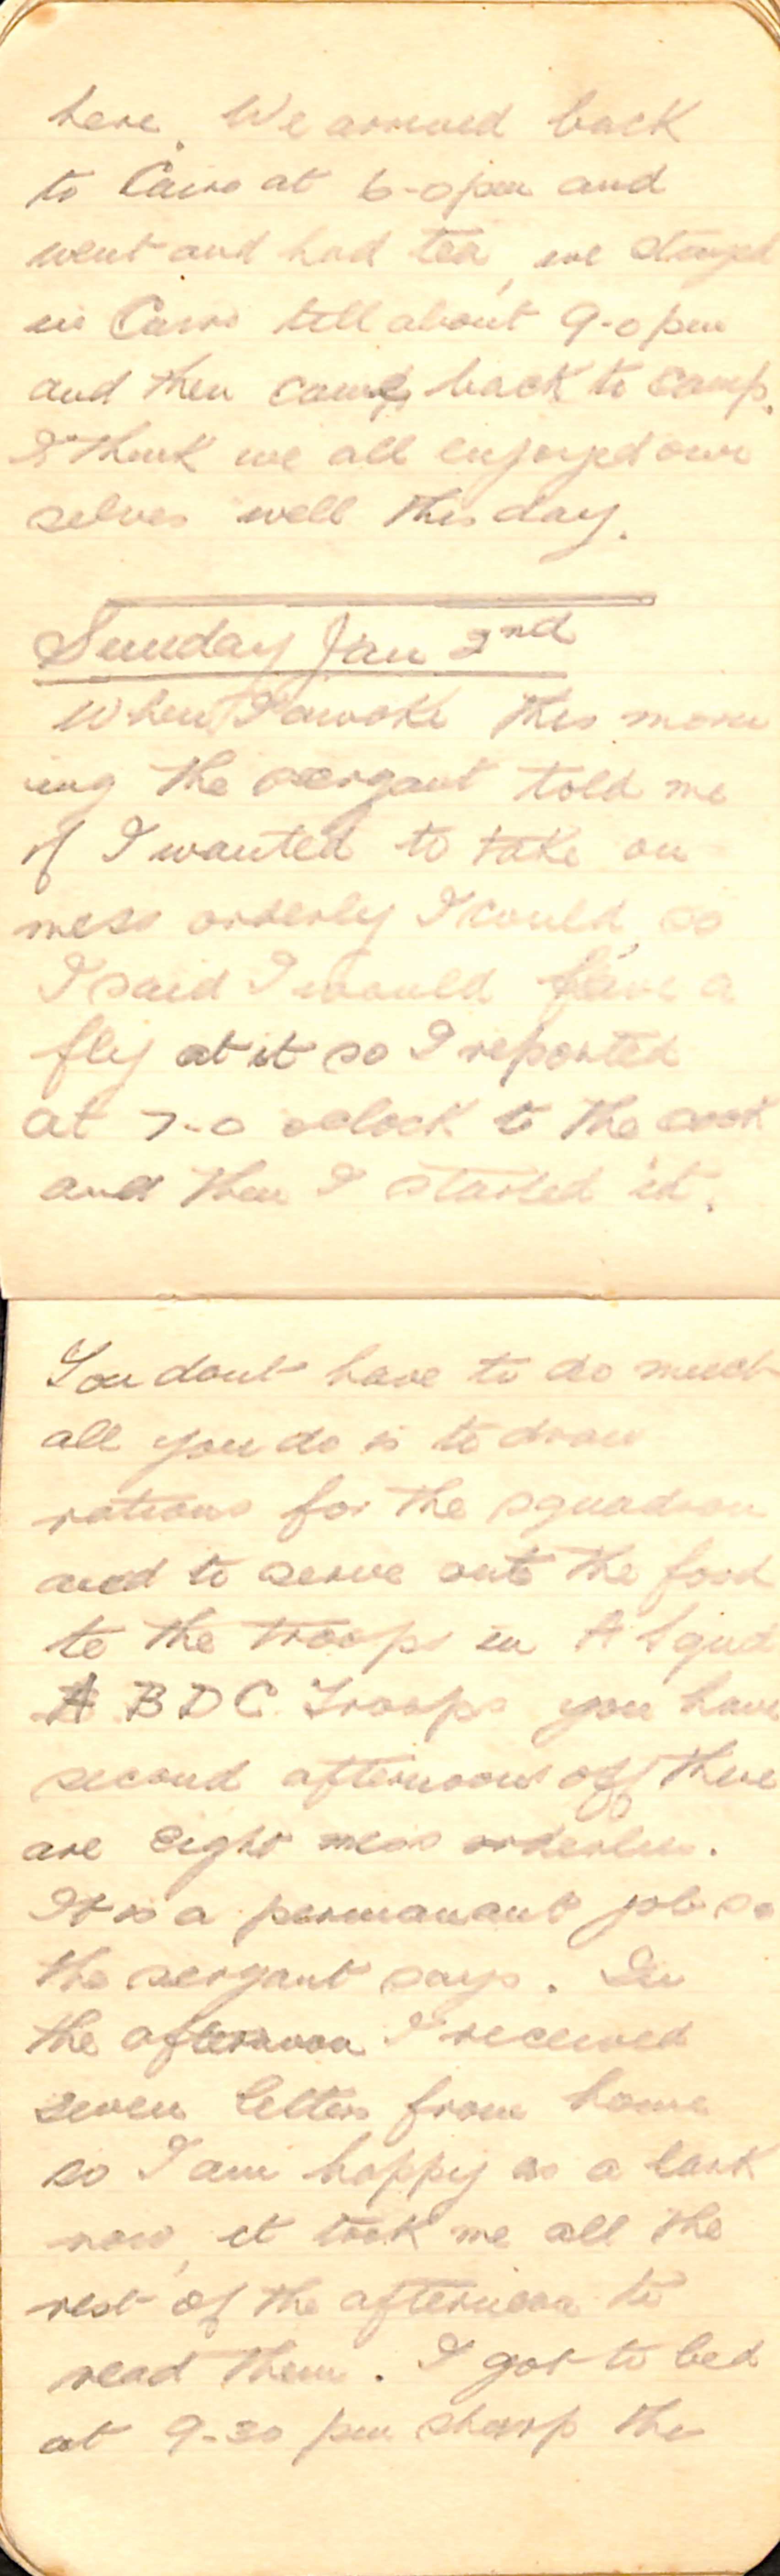 here. We arrived back
to Cairo at 6-0 pm and
went and had tea, we stayed
in Cairo till about 9-0 pm
and then came back to camp.
I think we all enjoyed our
selves well this day.
Sunday Jan 2nd
When I awoke this morn
ing the sergant told me
if I wanted to take on
mess orderly I could, so
I said I would have a
fly at it so I reported
at 7-0 oclock to the cook
and then I started it.
You dont have to do much
all you do is to draw
rations for the squadron
and to serve out the food
to the troops in A Squd
A B D C Troops you have
second afternoons off there
are eight mess orderlies.
It is a permanant job so
the sergant says. In
the afternoon I received
seven letters from home
so I am happy as a lark
now, it took me all the
rest of the afternoon to
read them. I got to bed
at 9-30 pm sharp the